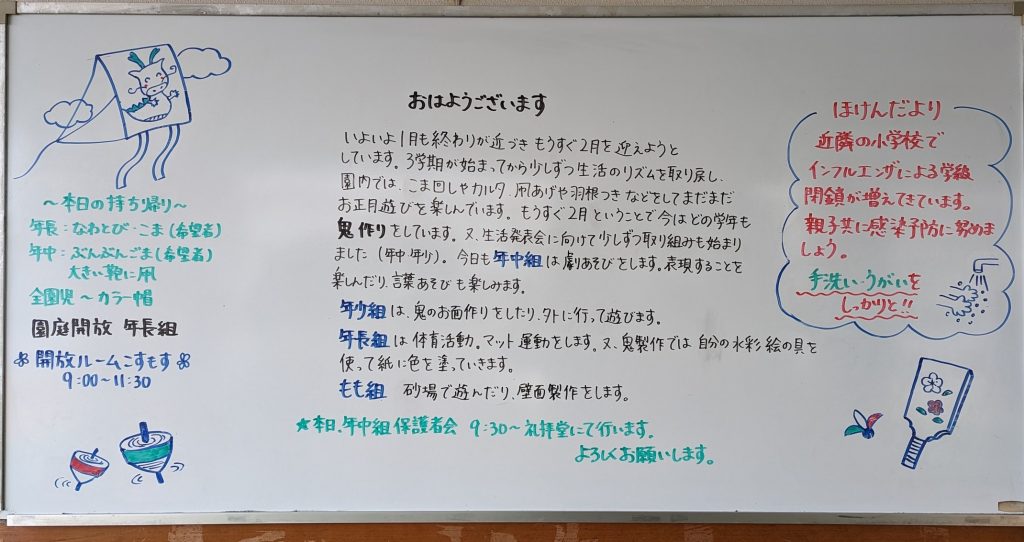 おはようございます
いよいよ1月も終わりが近づき もうすぐ2月を迎えようと
しています。3学期が始まってから少しずつ生活のリズムを取り戻し、
園内では、こま回しやカルタ、凧あげや羽根つきなどをしてまだまだ
お正月遊びを楽しんでいます。もうすぐ2月ということで今はどの学年も
鬼作りをしています。又、生活発表会に向けて少しずつ取り組みも始まり
ました(年中 年少)。今日も年中組は劇あそびをします。表現することを
楽しんだり、言葉あそびも楽しみます。
年少組は、鬼のお面作りをしたり、外に行って遊びます。
年長組は体育活動。マット運動をします。又、鬼製作では自分の水彩絵の具を
使って紙に色を塗っていきます。
もも組 砂場で遊んだり、壁面製作をします。
★本日、年中組保護者会 9:30〜礼拝堂にて行います。
よろしくお願いします。
〜本日の持ち帰り〜
年長:なわとび・こま(希望者)
年中:ぶんぶんごま(希望者)
大きい鞄に凧
全園児〜カラー帽
園庭開放 年長組
開放ルームこすもす
9:00〜11:30
ほけんだより
近隣の小学校で
インフルエンザによる学級
閉鎖が増えてきています。
親子共に感染予防に努めま
しょう。
手洗い・うがいを
しっかりと!!